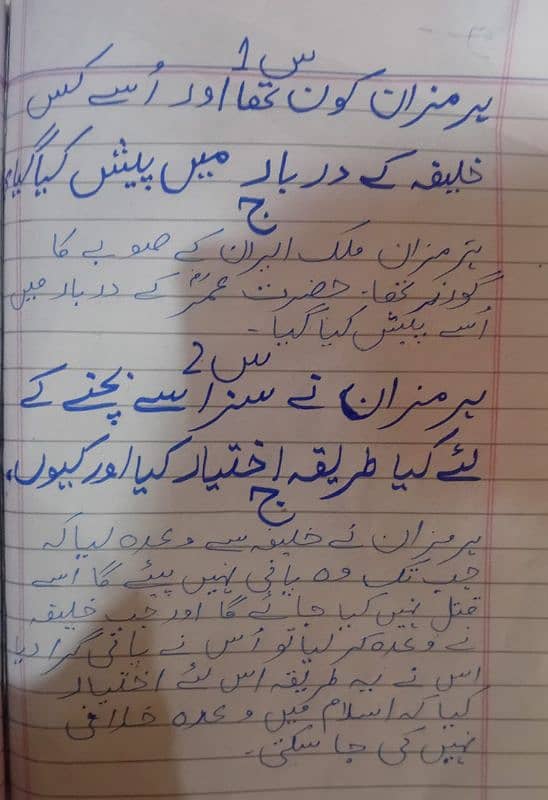 س 1
ہرمزان کون تھا اور اُسے کس
خلیفہ کے دربار میں پیش کیا گیا؟
ج
ہرمزان ملک ایران کے صوبے کا
گورنر تھا۔ حضرت عمرؓ کے دربار میں
اُسے پیش کیا گیا۔
س 2
ہرمزان نے سزا سے بچنے کے
لئے کیا طریقہ اختیار کیا اور کیوں،
ج
ہرمزان نے خلیفہ سے وعدہ لیا کہ
جب تک وہ پانی نہیں پیئے گا اُسے
قتل نہیں کیا جائے گا اور جب خلیفہ
نے وعدہ کر لیا تو اُس نے پانی گرا دیا
اس نے یہ طریقہ اس لئے اختیار
کیا کہ اسلام میں وعدہ خلافی
نہیں کی جا سکتی۔